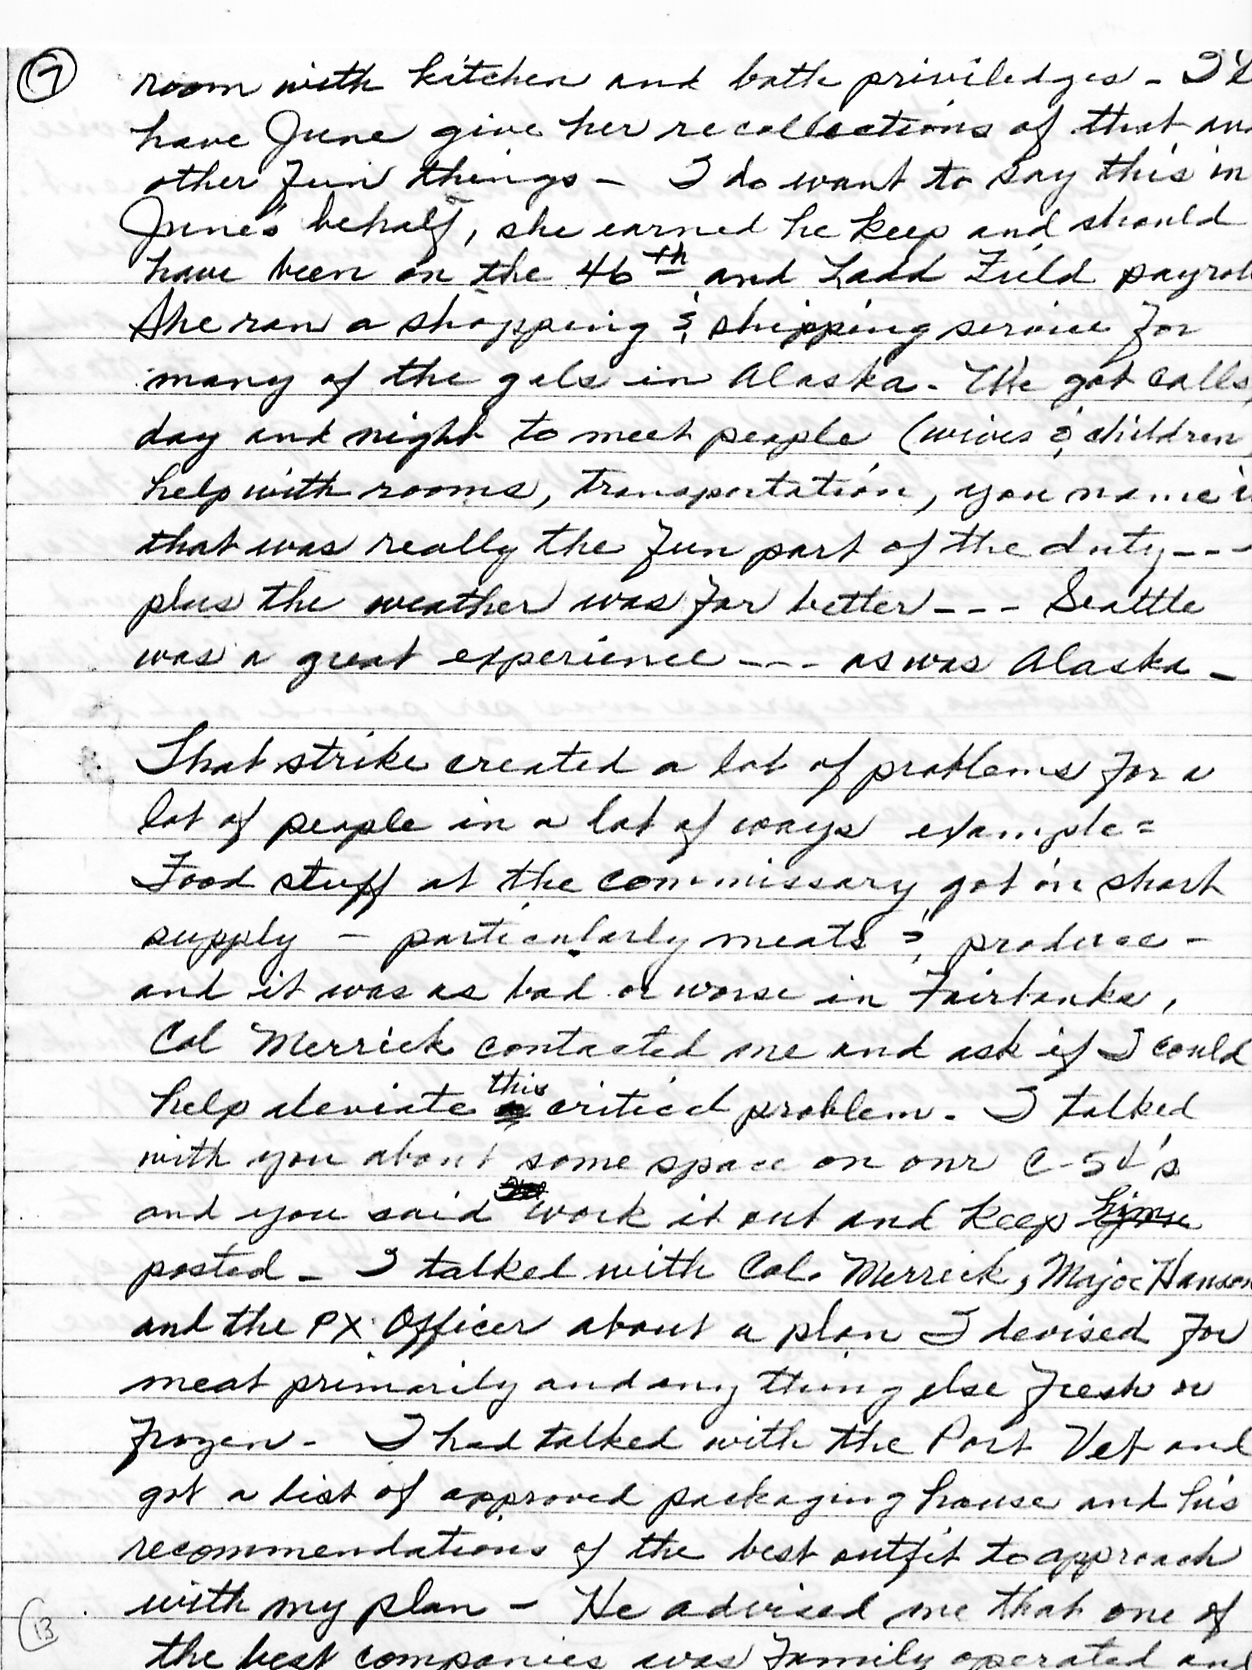 7
room with kitchen and bath priviledges - I'll
have June give her recollections of that and
other fun things - I do want to say this in
June's behalf, she earned he keep and should
have been on the 46th and Ladd Field payroll
She ran a shopping & shipping service for
many of the gals in Alaska. We got calls,
day and night to meet people (wives & children
help with rooms, transportation, you name i
that was really the fun part of the duty---
plus the weather was far better --- Seattle
was a great experience --- as was Alaska -
That strike created a lot of problems for a
lot of people in a lot of ways example =
Food stuff at the commissary got in short
supply - particularly meats & produce -
and it was as bad or worse in Fairbanks,
Col Merrick contacted me and ask if I could
help aleviate this critical problem. I talked
with you about some space on our C-54's
and you said work it out and keep
posted - I talked with Col. Merrick, Major Hanson
and the PX Officer about a plan I devised for
meat primarily and any thing else fresh or
frozen - I had talked with the Port Vet and
got a list of approved packaging house and his
recommendations of the best outfit to approach
with my plan - He advised me that one of
the best companies was Family operated and
13